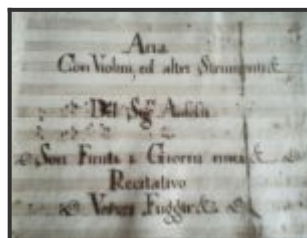 Aria
Con Violini, ed altri Strumenti
Del Sig.
Son Finiti i Giorni miei
Recitativo
Fuggir